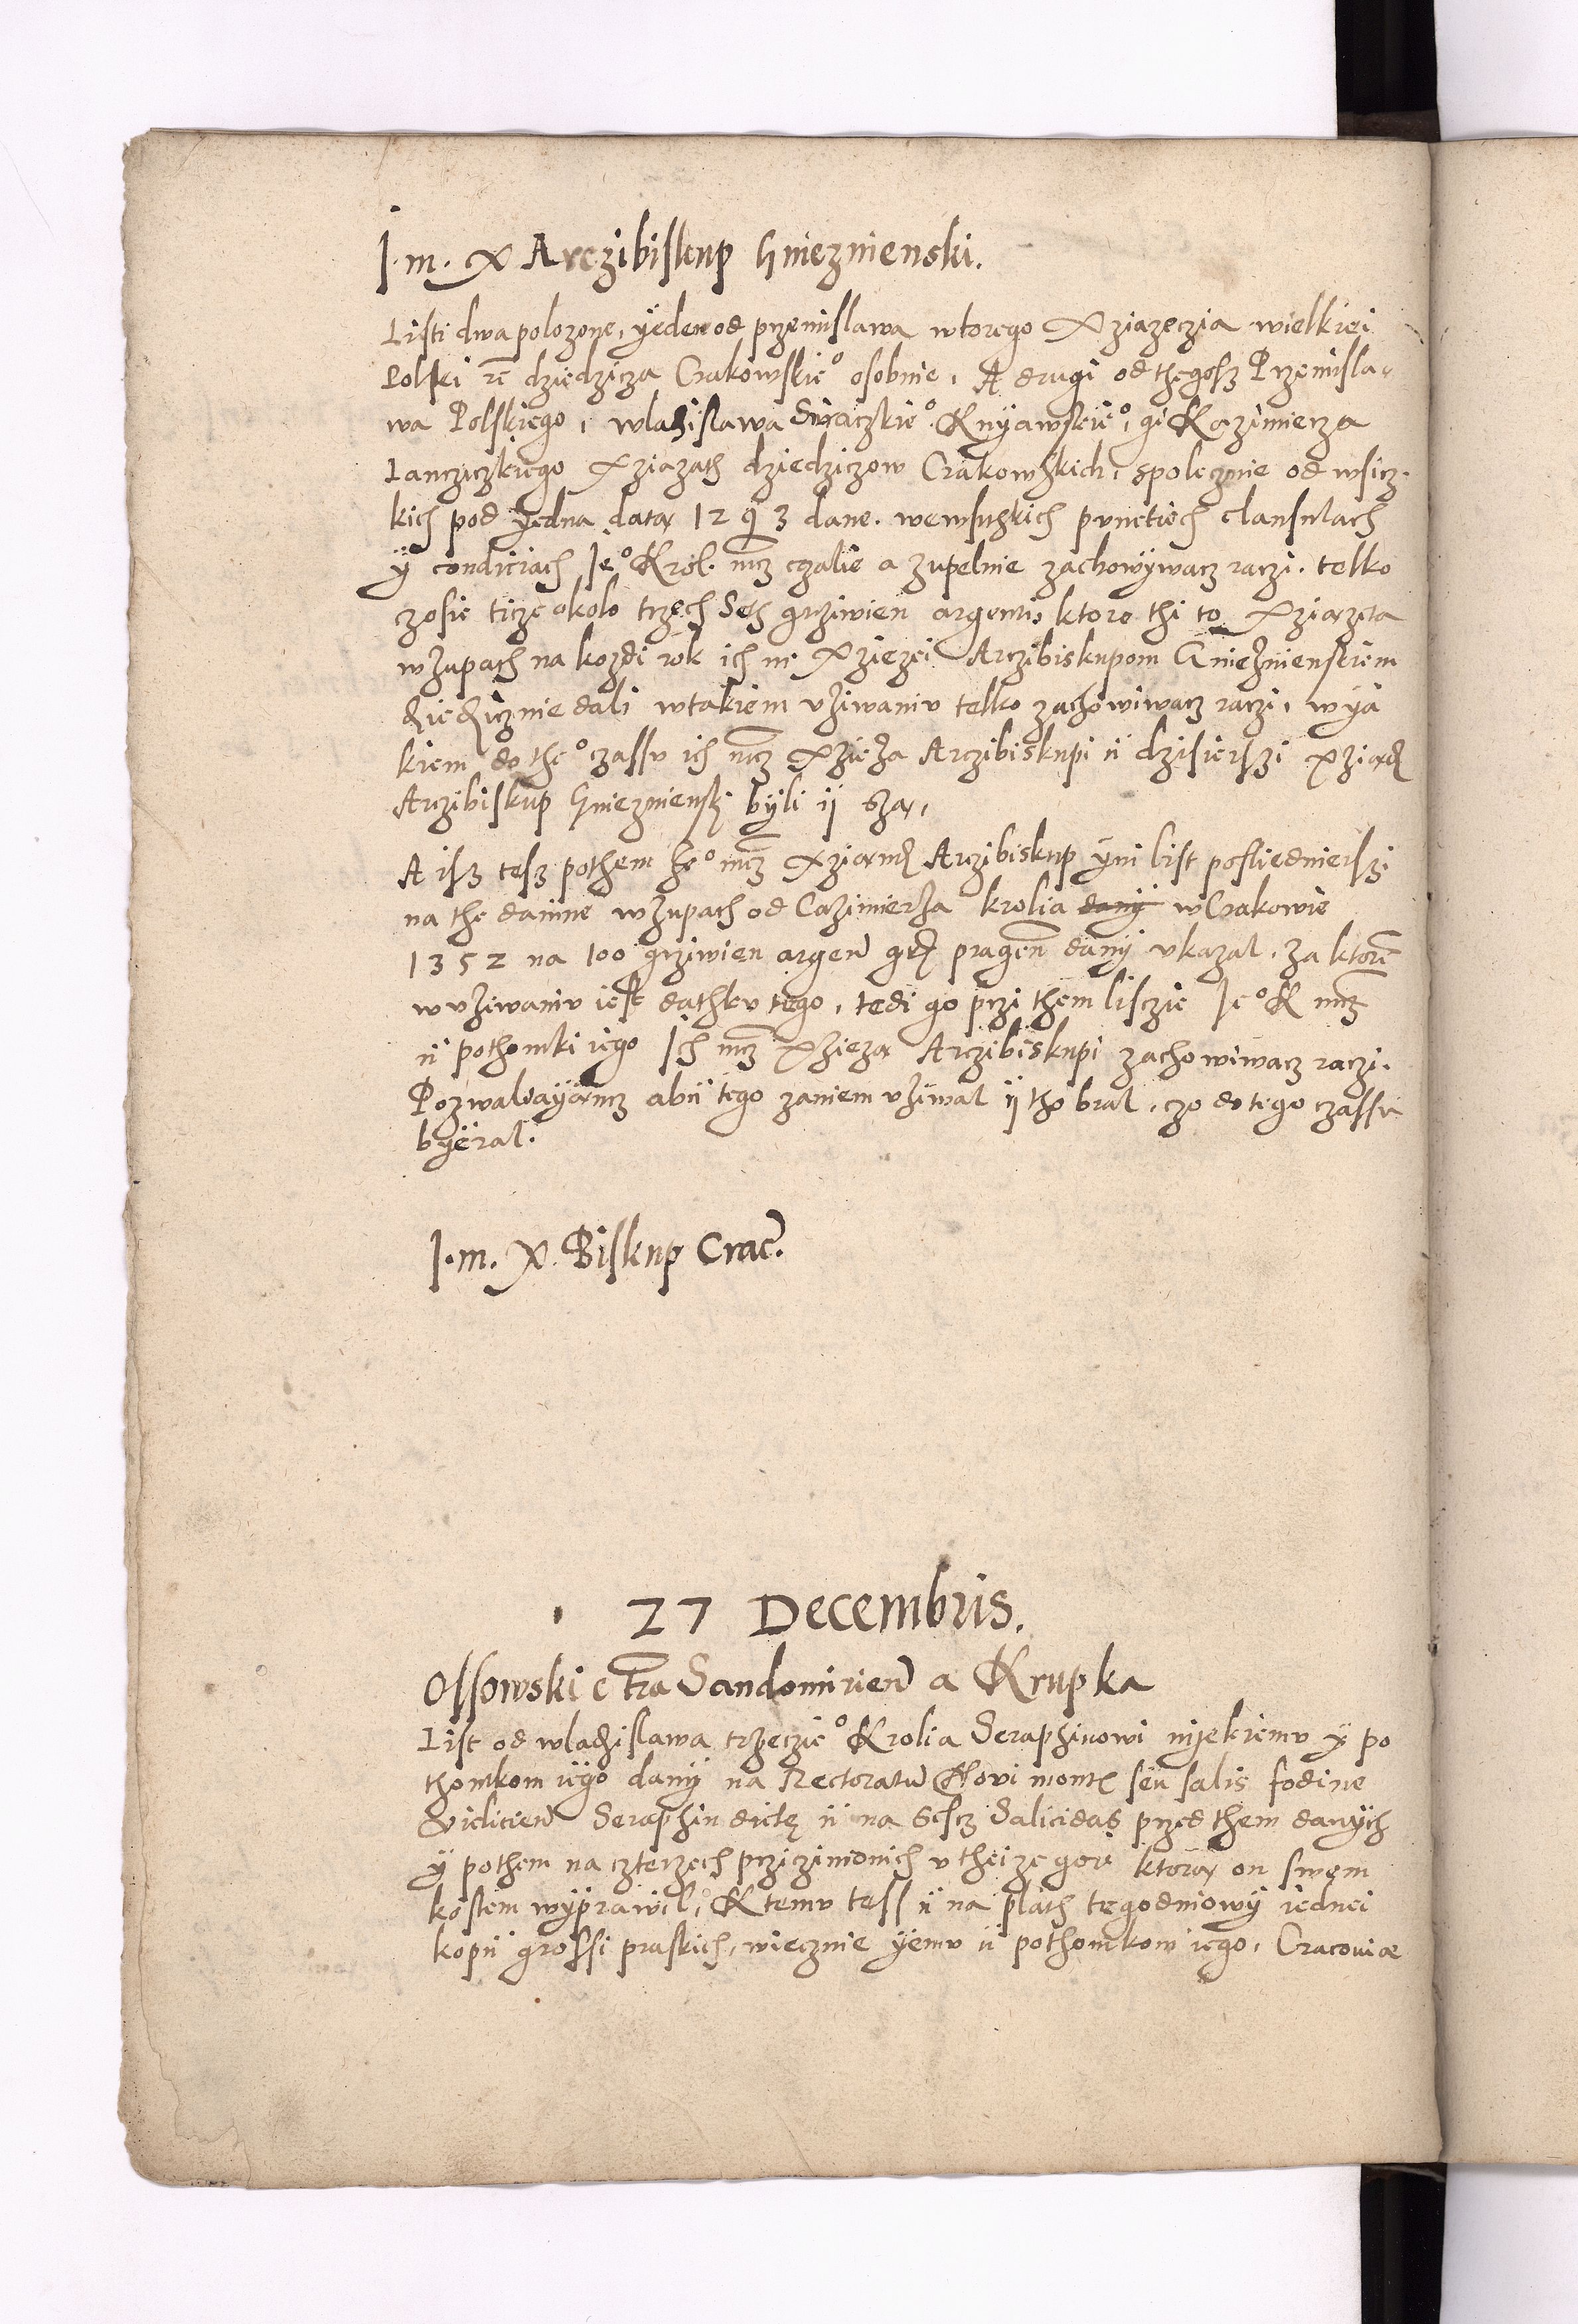 J. m. X Arczibiskup Gnieznienski.
Listi dwa polozone, yeden od przemislawa wtorego Xziazeczia wielkiei
Polski etc dziedzicza Crakowskie° osobnie, A drugi od thegosz Przemisla-
wa Polskiego, wladislawa Siraczkie° Kuyawskie°, y Kazimierza
Lancziczkiego Xziazath dziedziczow Crakowskich, spolecznie od wsicz-
kich pod yedna data 1293 dane. wewsitzkich punctiech clausulach
ÿ condiciach Je° Krol. mcz czalie a zupelnie zachowywacz raczi. telko
zosie ticze okolo trzech Seth grziwien argenti, ktore thi to Xziazęta
w zupach na kozdi rok ich m. Xziezei Arczibiskupom Gnieznienskiem
dziedzicznie dali w takiem uziwaniu telko zachowiwacz raczi, w ya
kiem do the° czassu ich mcz Xzieza Arczibiskupi ÿ dzisierszi Xziadz
Arczibiskup Gnieznienski byli ÿ sza,
A isz tesz pothem Je° mcz Xziandz Arczibiskup yni list posliednierszi
na the danine w zupach od Cazimierza krolia dany w Crakowie
1352 na 100 grziwien argen gr pragen dany ukazal, za ktorem
w uziwaniu iest dathku tego, tedi go przi them lisczie Je° K mcz
ÿ pothomki iego Jch mcz Xzieza Arczibiskupi zachowiwacz raczi.
Pozwalaiayancz abÿ tego zaniem uziwal ÿ tho bral, czo do tego czassu
byeral.
J. m. X. Biskup Crac.
27 Decembris.
Ossowski e tra Sandomirien a Krupka
List od wladzislawa trzeczie° Krolia Seraphinowi nyekiemu ÿ po
thomkom iego dany na Rectoratu Novi montis seu salis fodine
Vieliciens Seraphin dicte ÿ na sescz Salicidas przed them danych
ÿ pothem na czterzech prziczimonich u theize gori ktora on swem
kostem wyprawil, K temu tess ÿ na plath tegodniowy iednei
kopÿ grossi praskich, wiecznie yemu ÿ pothomkom iego, Cracoviae